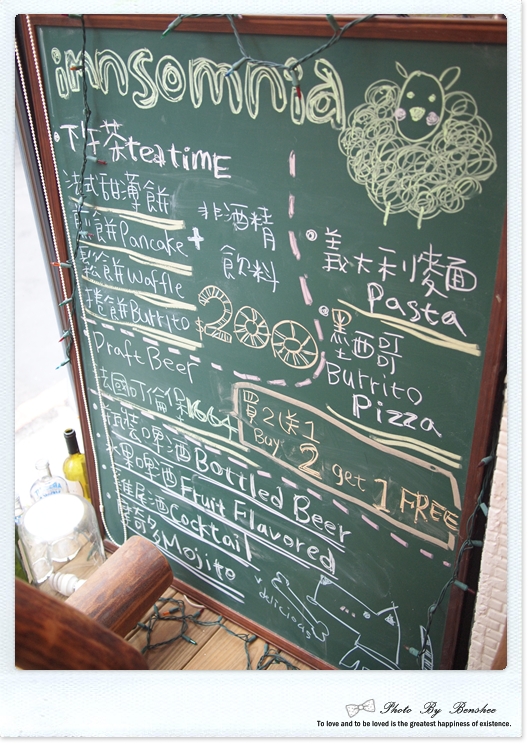 imnsomnia
下午茶teatimE
法式甜薄餅
煎餅Pancake
鬆餅waffle
捲餅Burrito
+
非酒精
飲料
$200
義大利麵
Pasta
墨西哥
Burrito
Pizza
Draft Beer
法國可倫堡1664
買2送1
Buy 2 get 1 FREE
瓶裝啤酒Bottled Beer
水果啤酒Fruit Flavored
雞尾酒Cocktail
摩奇多Mojito
delicious
Photo By Benshee
To love and to be loved is the greatest happiness of existence.